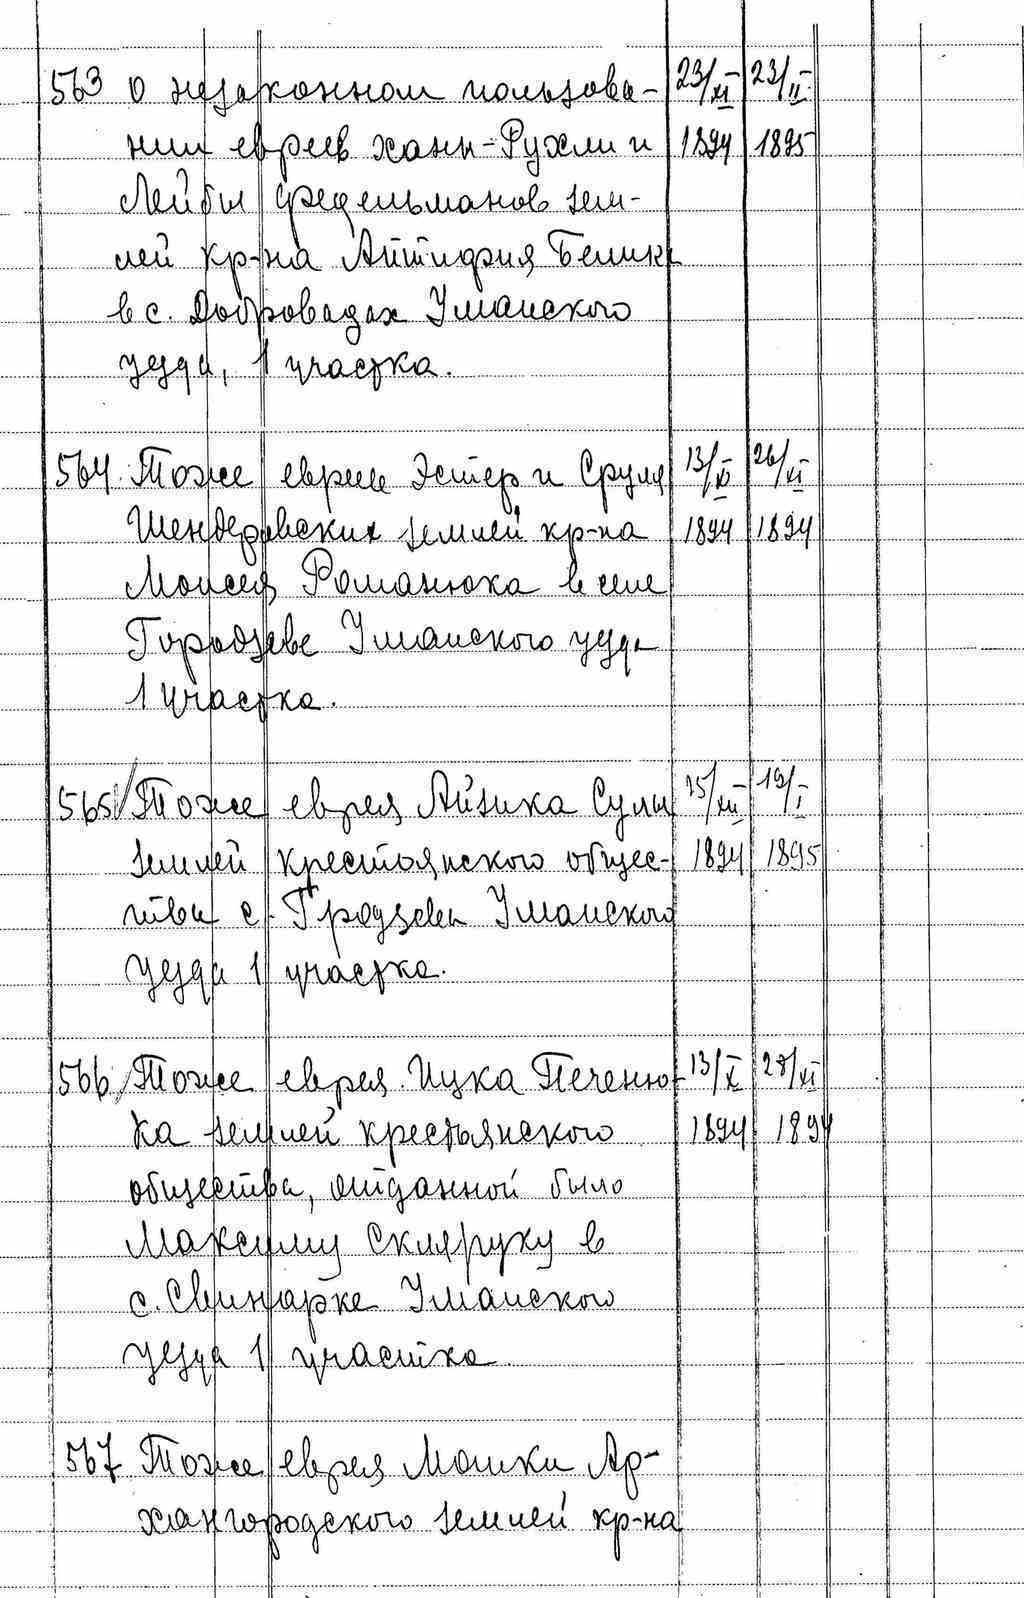 563 о незаконном пользова- 23/XI 23/II
нии евреев Ханы-Рухли и 1894 1895
Лейбы Фредельманов зем-
лей кр-на Антифия Белика
в с. Доброводах Уманского
уезда, 1 участка.
564. Тоже евреев Эстер и Сруля 13/XI 26/XI
Шендеровских землей кр-на 1894 1894
Моисея Романюка в селе
Городзеве Уманского уезда
1 участка.
565 Тоже еврея Айзика Сулы 15/XII 19/I
землей крестьянского общес- 1894 1895
тва с. Гродзева Уманского
уезда 1 участка.
566 Тоже еврея Ицка Печеню- 13/X 28/XI
ка землей крестьянского 1894 1894
общества, отданной было
Максиму Скляруку в
с. Свинарке Уманского
уезда 1 участка
567 Тоже еврея Мошки Ар-
хангородского землей кр-на